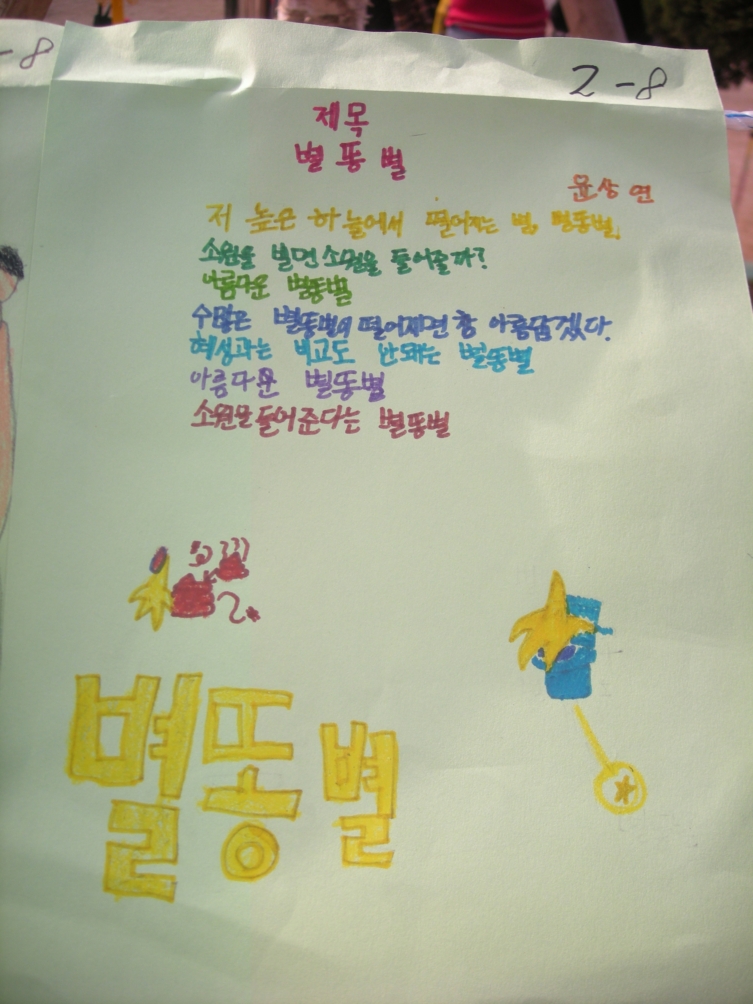 -8
2-8
제목
별똥별
윤상연
저 높은 하늘에서 떨어지는 별, 별똥별.
소원을 빌면 소원을 들어줄까?
아름다운 별똥별
수많은 별똥별이 떨어지면 참 아름답겠다.
혜성과는 비교도 안돼는 별똥별
아름다운 별똥별
소원을 들어준다는 별똥별
별똥별